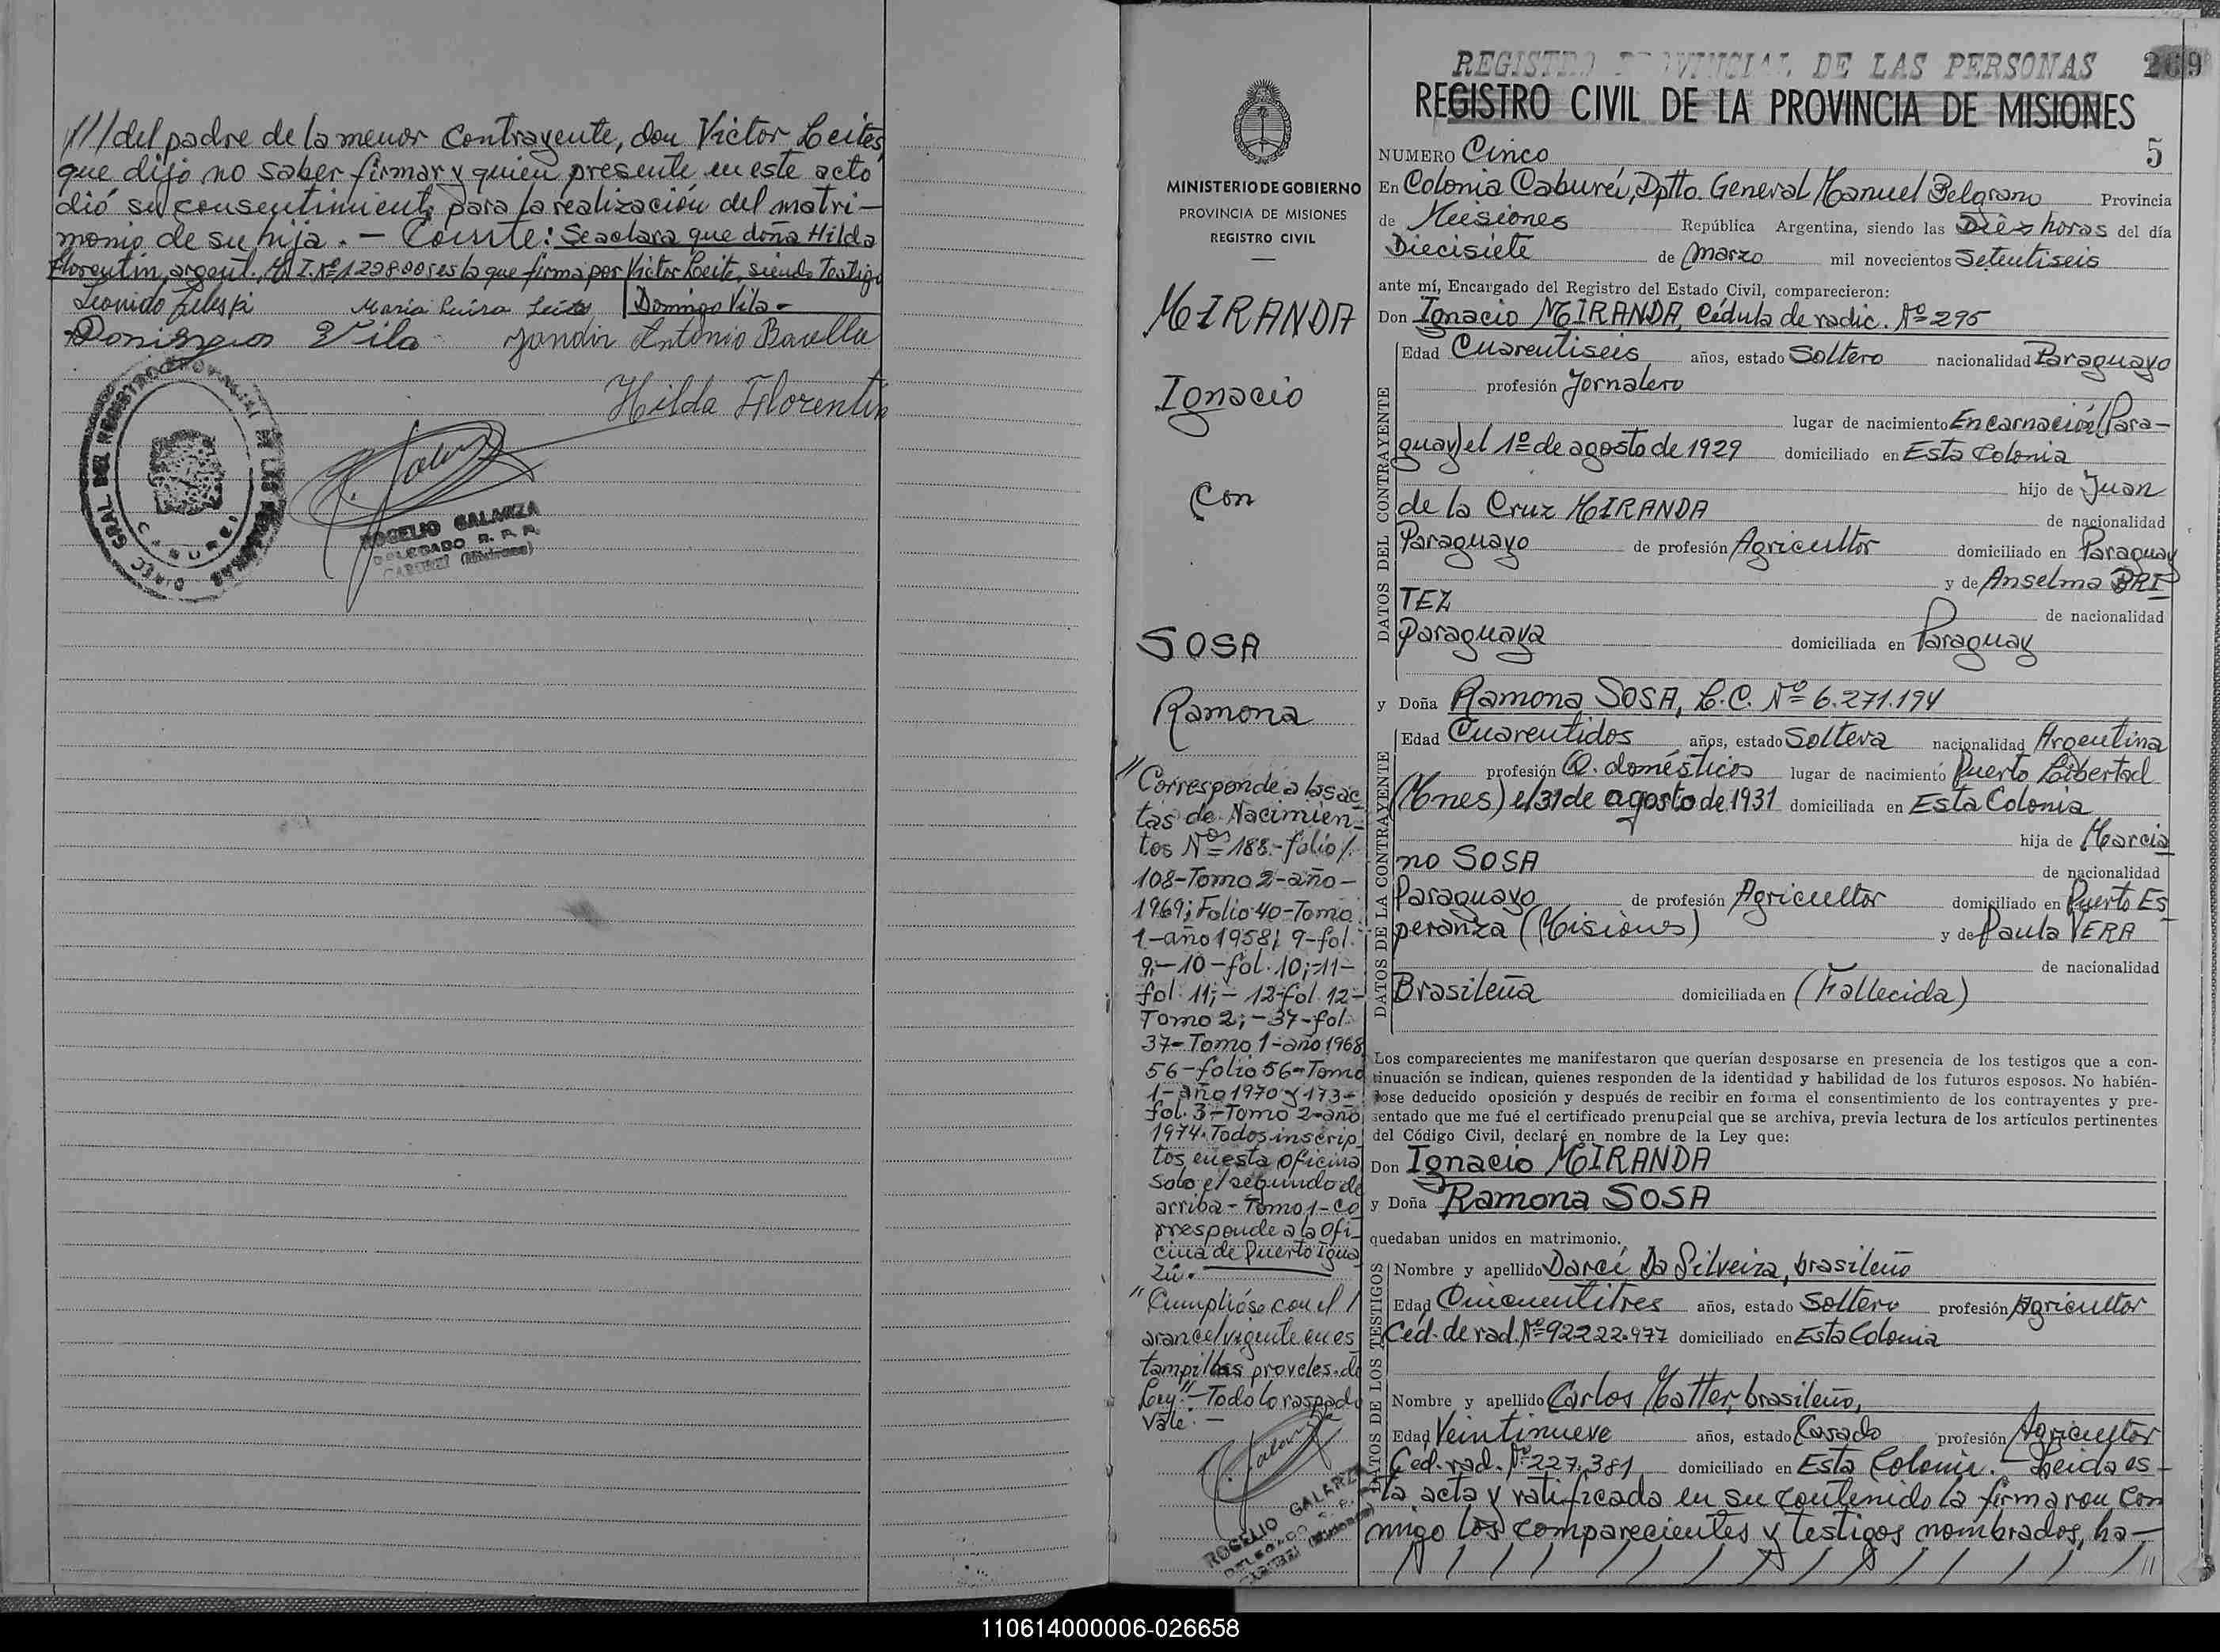 /// del padre de la menor contrayente, don Victor Leites,
que dijo no saber firmar y quien presente en este acto
dió su consentimiento para la realización del matri-
monio de su hija. - Conste: Se aclara que doña Hilda
Florentin, argent. es la que firma por Victor Leite, siendo Testigo
Domingo Vila -
Leonido Maria Luisa Leites
Domingos Vila Jandir Antonio
Hilda Florentin
ROGELIO GALARZA
DELEGADO R. P. P.
CABUREI (Misiones)
REGISTRO PROVINCIAL DE LAS PERSONAS 269
REGISTRO CIVIL DE LA PROVINCIA DE MISIONES
MINISTERIO DE GOBIERNO
PROVINCIA DE MISIONES
REGISTRO CIVIL
MIRANDA
Ignacio
Con
SOSA
Ramona
"Corresponde a las ac
tas de Nacimien-
tos Nos 188.- folio/.
108-Tomo 2-año-
1969; Folio 40-Tomo
1-año 1958; 9-fol.
9;-10-fol. 10;-11-
fol. 11;- 12-fol. 12-
Tomo 2;-37-fol.
37-Tomo 1-año 1968
56-folio 56-Tomo
1-año 1970 y 173-
fol. 3-Tomo 2-año
1974. Todos inscrip
tos en esta oficina
solo el segundo de
arriba-Tomo 1-Co
rresponde a la Ofi-
cina de Puerto Igua
zú.
"Cumplióse con el /
arancel vigente en es
tampillas provcles. de
Ley".- Todo lo raspado
Vale. -
ROGELIO GALARZA
DELEGADO R. P. P.
CABUREI (Misiones)
NUMERO Cinco 5
En Colonia Cabureí, Dptto. General Manuel Belgrano Provincia
de Misiones República Argentina, siendo las Diez horas del día
Diecisiete de Marzo mil novecientos Setentiseis
ante mí, Encargado del Registro del Estado Civil, comparecieron:
Don Ignacio MIRANDA, Cédula de radic. Nº 295
DATOS DEL CONTRAYENTE
Edad Cuarentiseis años, estado Soltero nacionalidad Paraguayo
profesión Jornalero
lugar de nacimiento Encarnación (Para-
guay) el 1º de agosto de 1929 domiciliado en Esta Colonia
hijo de Juan
de la Cruz MIRANDA
de nacionalidad
Paraguayo de profesión Agricultor domiciliado en Paraguay
y de Anselma BRI-
TEZ
de nacionalidad
Paraguaya domiciliada en Paraguay
y Doña Ramona SOSA, L.C. Nº 6.271.194
DATOS DE LA CONTRAYENTE
Edad Cuarentidos años, estado Soltera nacionalidad Argentina
profesión Q. domésticos lugar de nacimiento Puerto Libertad
(Mnes) el 31 de agosto de 1931 domiciliada en Esta Colonia
hija de Marcia
no SOSA
de nacionalidad
Paraguayo de profesión Agricultor domiciliado en Puerto Es
peranza (Misiones) y de Paula VERA
de nacionalidad
Brasileña domiciliada en (Fallecida)
Los comparecientes me manifestaron que querían desposarse en presencia de los testigos que a con-
tinuación se indican, quienes responden de la identidad y habilidad de los futuros esposos. No habién-
dose deducido oposición y después de recibir en forma el consentimiento de los contrayentes y pre-
sentado que me fué el certificado prenupcial que se archiva, previa lectura de los artículos pertinentes
del Código Civil, declaré en nombre de la Ley que:
Don Ignacio MIRANDA
y Doña Ramona SOSA
quedaban unidos en matrimonio.
DATOS DE LOS TESTIGOS
Nombre y apellido Darcí Da Silveira, brasileño
Edad Cincuentitres años, estado Soltero profesión Agricultor
Céd. de rad. Nº 92222.977 domiciliado en Esta Colonia
Nombre y apellido Carlos Matter, brasileño,
Edad Veintinueve años, estado Casado profesión Agricultor
Ced. rad. Nº 227.381 domiciliado en Esta Colonia. - Leida es-
ta acta y ratificada en su contenido la firmaron con
migo los comparecientes y testigos nombrados, ha-
110614000006-026658